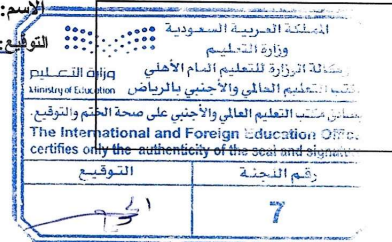 الاسم:
التوقيع:
المملكة العربية السعودية
وزارة التعليم
وكالة الوزارة للتعليم العام الأهلي
مكتب التعليم العالمي والأجنبي بالرياض
وزارة التعليم
Ministry of Education
مكتب التعليم العالمي والأجنبي على صحة الختم والتوقيع
The International and Foreign Education Office
certifies only the authenticity of the seal and signature
رقم اللجنة
التوقيع
7